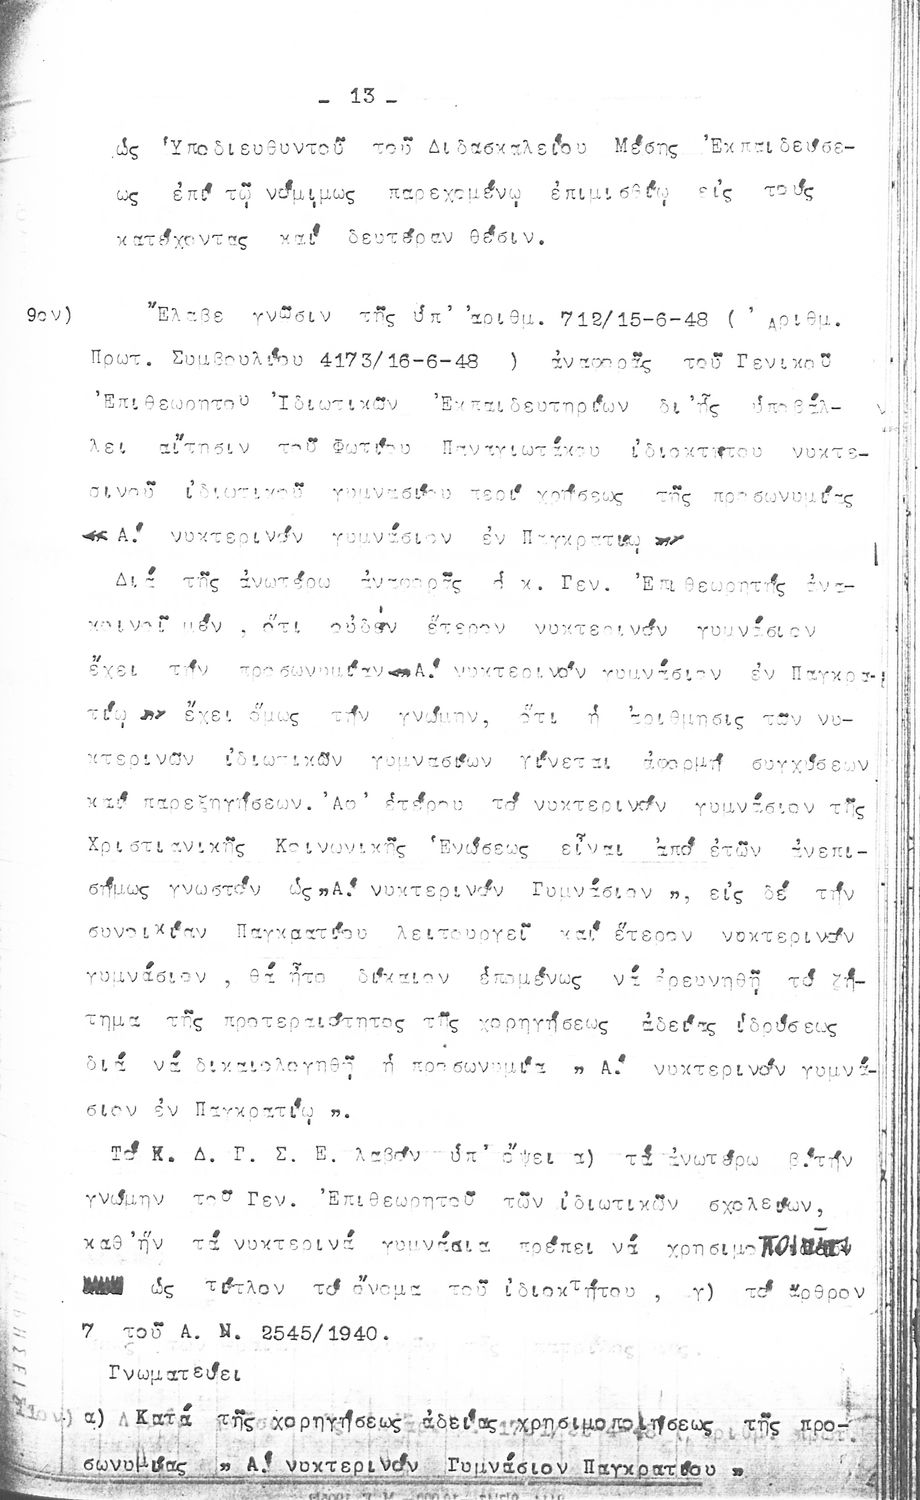 - 13 -
ὡς Ὑποδιευθυντοῦ τοῦ Διδασκαλείου Μέσης Ἐκπαιδεύσε-
ως ἐπί τῷ νόμιμως παρεχομένῳ ἐπιμισθίῳ εἰς τούς
κατέχοντας καί δευτέραν θέσιν.
9ον) Ἔλαβε γνῶσιν τῆς ὑπ' ἀριθμ. 712/15-6-48 ( Ἀριθμ.
Πρωτ. Συμβουλίου 4173/16-6-48 ) ἀναφορᾶς τοῦ Γενικοῦ
Ἐπιθεωρητοῦ Ἰδιωτικῶν Ἐκπαιδευτηρίων δι' ἧς ὑποβάλ-
λει αἴτησιν τοῦ Φωτίου Παναγιωτάκου ἰδιοκτήτου νυκτε-
σινοῦ ἰδιωτικοῦ γυμνασίου περί χρήσεως τῆς προσωνυμίας
« Α.' νυκτερινόν γυμνάσιον ἐν Παγκρατίῳ »
Διά τῆς ἀνωτέρω ἀναφορᾶς ὁ κ. Γεν. Ἐπιθεωρητής ἀνα-
κοινοῖ μέν , ὅτι οὐδέν ἕτερον νυκτερινόν γυμνάσιον
ἔχει τήν προσωνυμίαν « Α.' νυκτερινόν γυμνάσιον ἐν Παγκρα-
τίῳ » ἔχει ὅμως τήν γνώμην, ὅτι ἡ ἀρίθμησις των νυ-
κτερινῶν ἰδιωτικῶν γυμνασίων γίνεται ἀφορμή συγχύσεων
καί παρεξηγήσεων. Ἀφ' ἑτέρου τό νυκτερινόν γυμνάσιον τῆς
Χριστιανικῆς Κοινωνικῆς Ἑνώσεως εἶναι ἀπό ἐτῶν ἀνεπι-
σήμως γνωστόν ὡς „Α.' νυκτερινόν Γυμνάσιον „, εἰς δέ τήν
συνοικίαν Παγκρατίου λειτουργεῖ καί ἕτερον νυκτερινόν
γυμνάσιον , θά ἦτο δίκαιον ἑπομένως νά ἐρευνηθῇ τό ζή-
τημα τῆς προτεραιότητος τῆς χορηγήσεως ἀδείας ἱδρύσεως
διά νά δικαιολογηθῇ ἡ προσωνυμία „ Α.' νυκτερινόν γυμνά-
σιον ἐν Παγκρατίῳ „.
Τό Κ. Δ. Γ. Σ. Ε. λαβόν ὑπ' ὄψει α) τά ἀνωτέρω β.'τήν
γνώμην τοῦ Γεν. Ἐπιθεωρητοῦ τῶν ἰδιωτικῶν σχολείων,
καθ' ἥν τά νυκτερινά γυμνάσια πρέπει νά
ὡς τίτλον τό ὄνομα τοῦ ἰδιοκτήτου , γ) τό ἄρθρον
7 τοῦ Α. Ν. 2545/1940.
Γνωματεύει
α) Κατά τῆς χορηγήσεως ἀδείας χρησιμοποιήσεως τῆς προ-
σωνυμίας „ Α.' νυκτερινόν Γυμνάσιον Παγκρατίου „